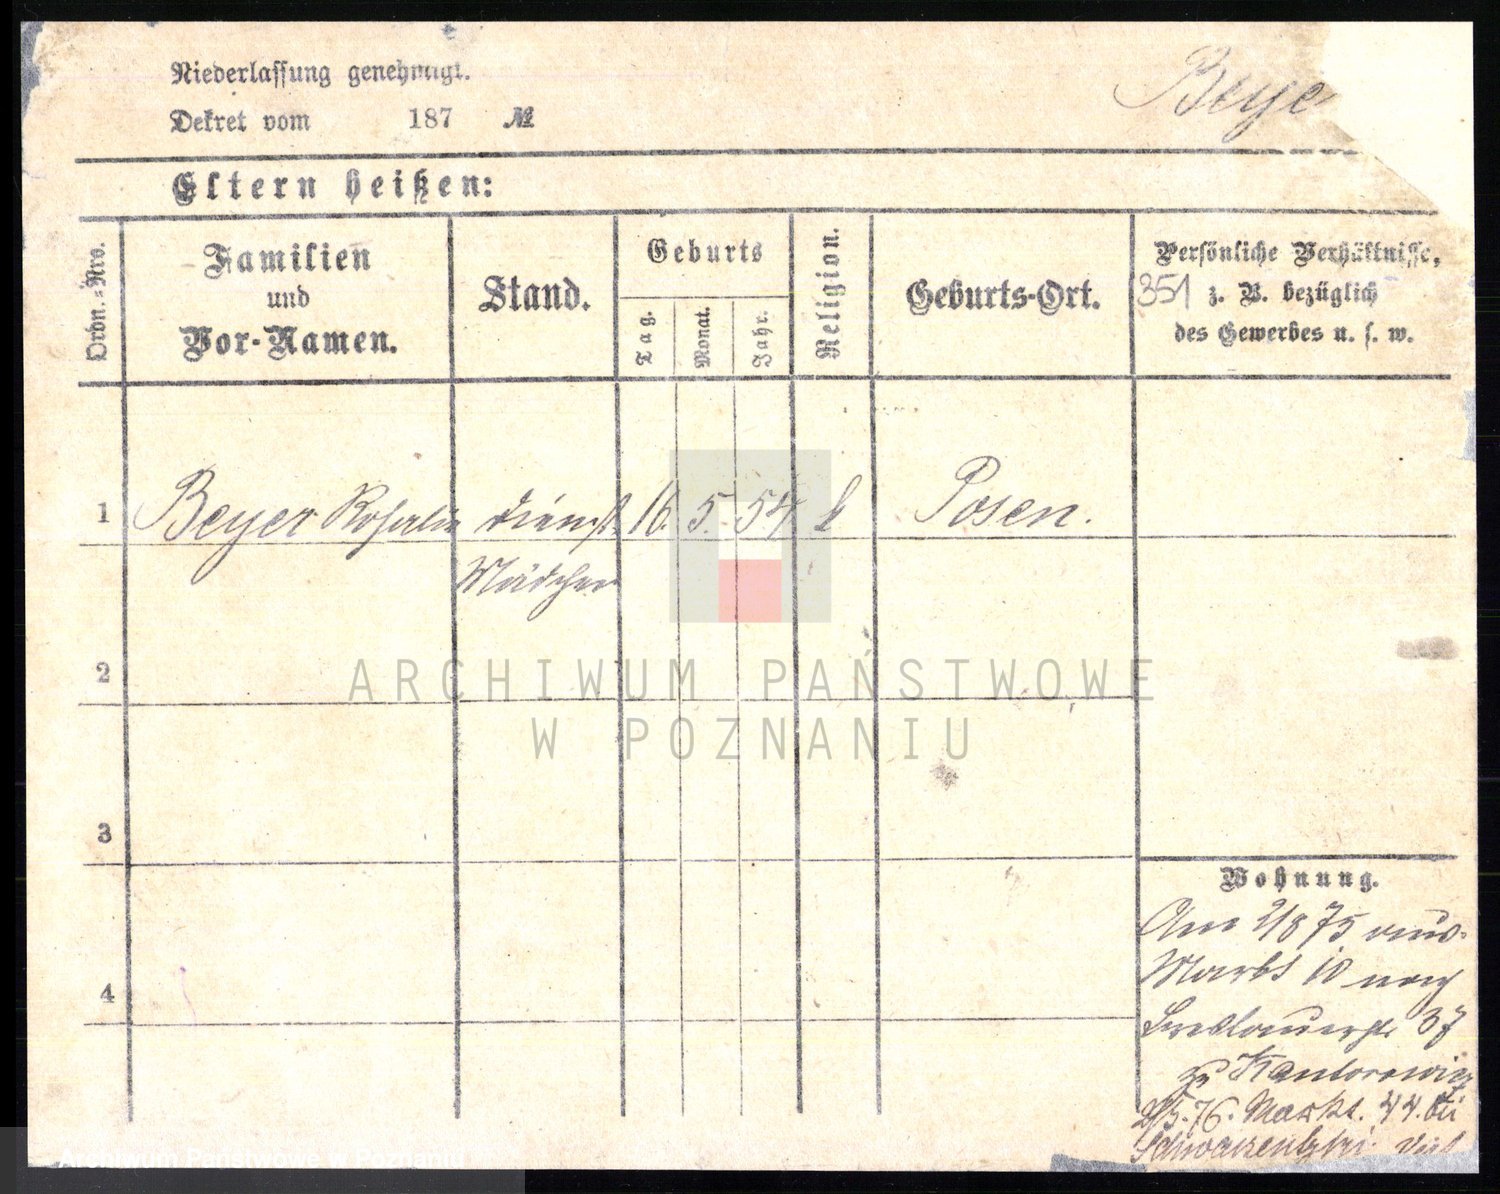 Niederlassung genehmigt.
Beye
Dekret vom 187 №
Eltern heißen:
Ordn.=Nro.
Familien
und
Vor-Namen.
Stand.
Geburts
Tag.
Monat.
Jahr.
Religion.
Geburts-Ort.
Persönliche Verhältnisse,
351 z. B. bezüglich
des Gewerbes u. s. w.
1 Beyer Rosalie Dienst 16. 5. 54 Posen.
Mädchen
2
ARCHIWUM PAŃSTWOWE
W POZNANIU
3
Wohnung.
Am 2/8 75 von
Markt 10 nach
Breslauerstr 37
zu Kantorowicz
2/5.76. Markt. 44. bei
4
Archiwum Państwowe w Poznaniu